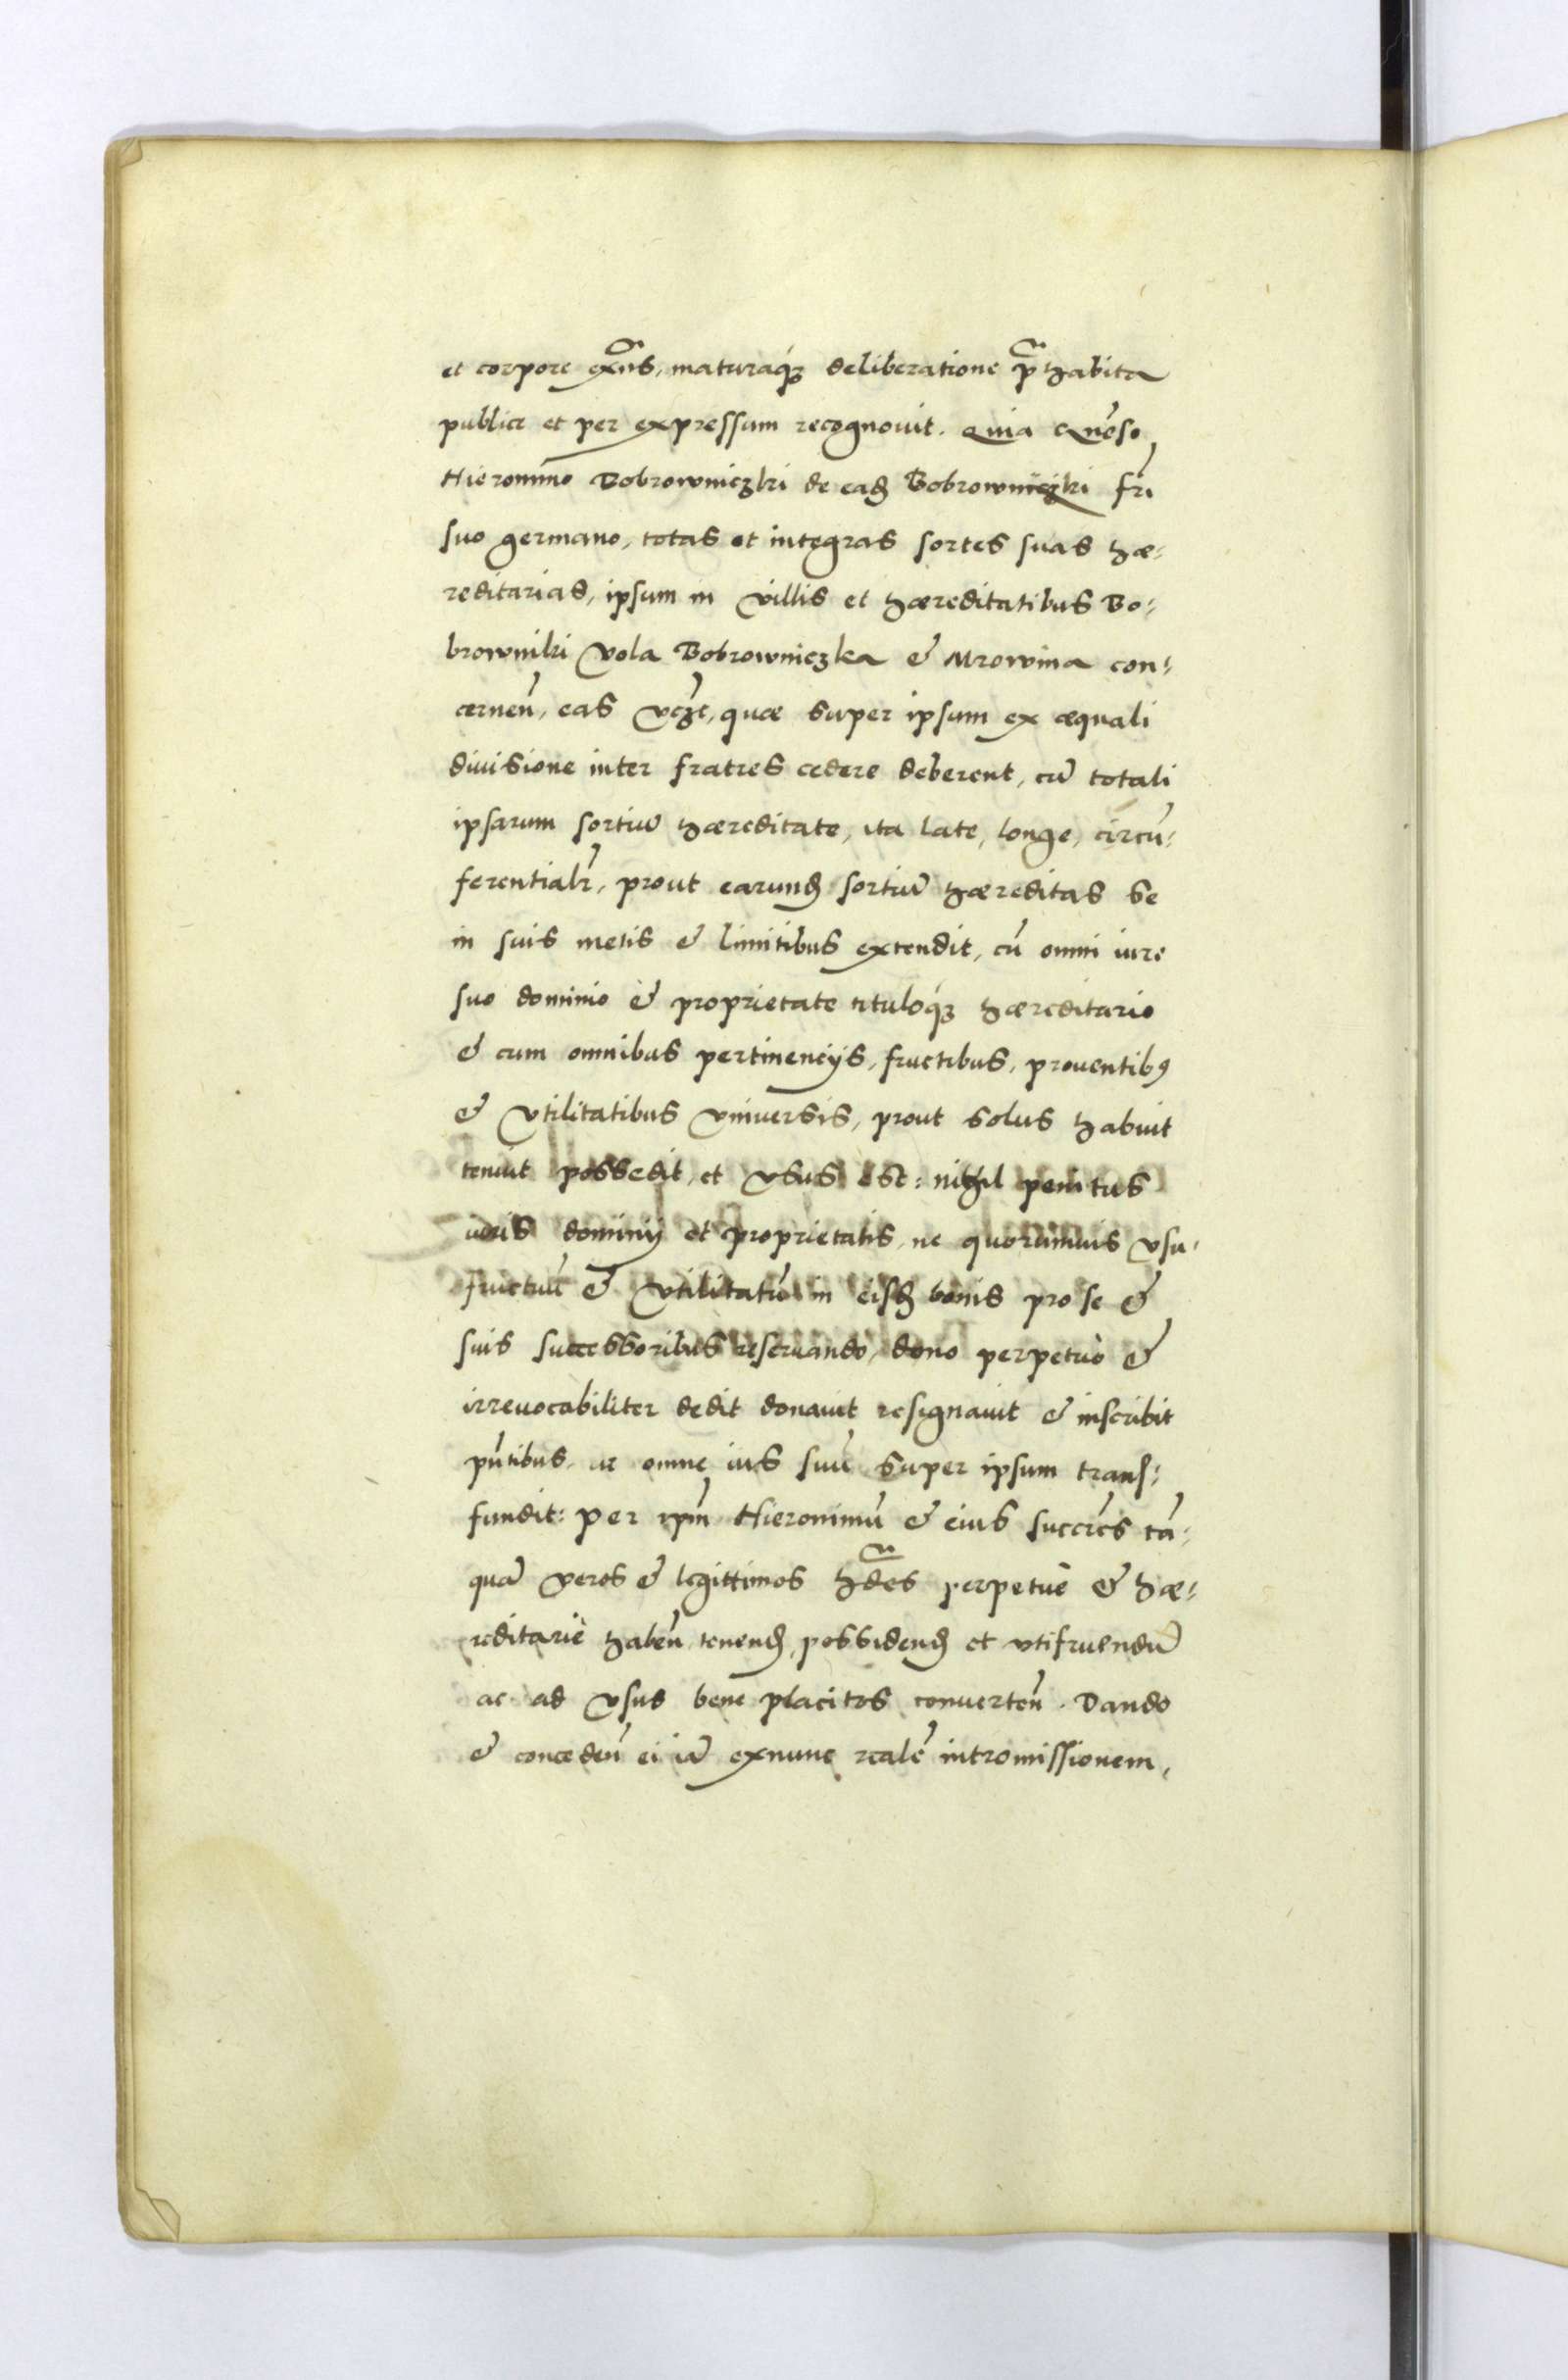 et corpore exñs, maturaq́ꝫ deliberatione p̃habita
publice et per expressum recognouit. Quia Gnẽso
Hieronimo Bobrowniczki de eadꝫ Bobrowniczki frĩ
suo germano, totas et integras sortes suas hæ-
reditarias, ipsum in villis et hæreditatibus Bo-
browniki Vola Bobrowniczka & Mrowina con-
cerneñ, eas vczꝫ, quæ super ipsum ex æquali
diuisione inter fratres cedere deberent, cũ totali
ipsarum sortiũ hæreditate, ita late, longe, circũ-
ferentialr̃, prout earundꝫ sortiũ hæreditas se
in suis metis & limitibus extendit, cũ omni iure
suo dominio & proprietate tituloq́ꝫ hæreditario
& cum omnibus pertinencijs, fructibus, prouentibꝰ
& vtilitatibus vniuersis, prout solus habuit
tenuit possedit, et vsus est: nihil penitus
iuris dominij et proprietatis, ne quorumuis vsu-
fructuũ & vtilitatũ in eisdꝫ bonis pro se &
suis successoribus reseruando, dono perpetuò &
irreuocabiliter dedit donauit resignauit & inscribit
pñtibus. ac omne ius suũ super ipsum transf-
fundit: per ipm̃ Hieronimũ & eius succr̃es tã-
quã veros & legittimos hæ̃des perpetuè & hæ-
reditariè habeñ tenendꝫ, possidendꝫ et vtifruendũ
ac ad vsus bene placitos conuerteñ. Dando
& concedeñ ei iã exnunc realẽ intromissionem,